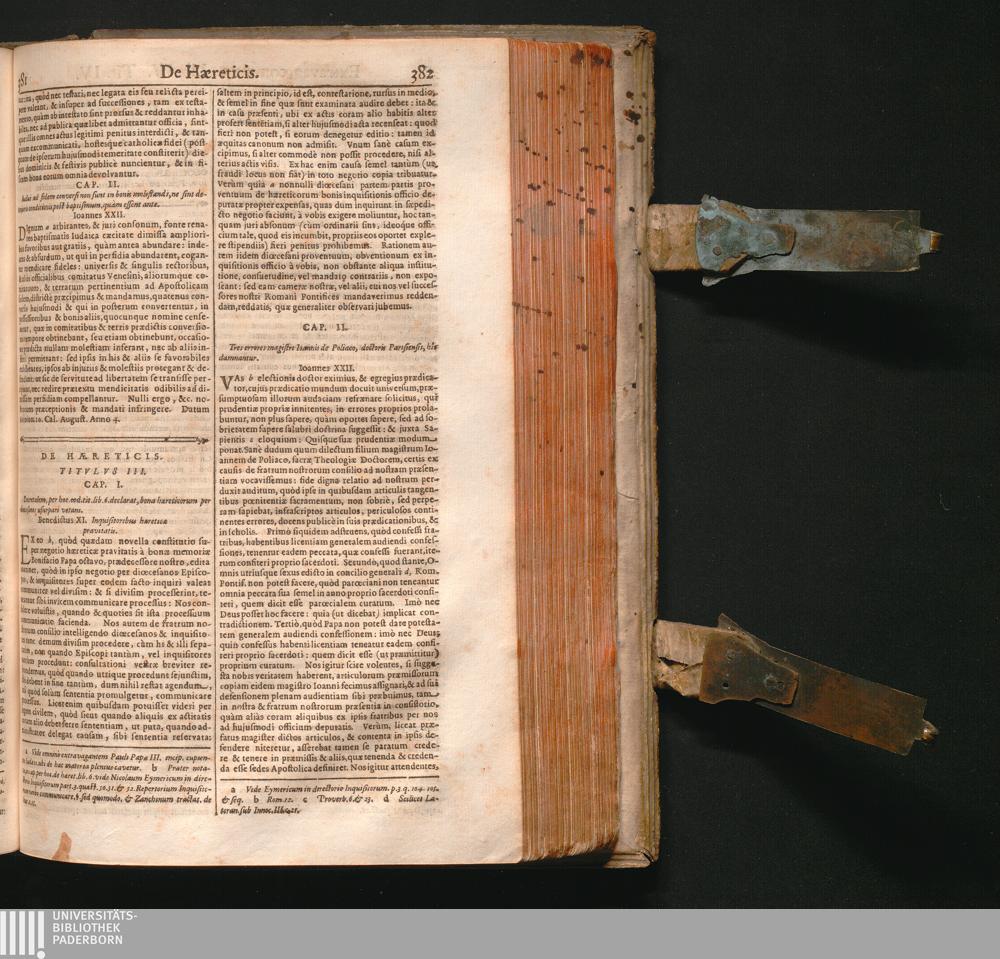 De Hæreticis.
382
quòd nec testari, nec legata eis seu relicta perci-
pere valeant, & insuper ad successiones, tam ex testa-
mento, quàm ab intestato sint prorsus & reddantur inha-
biles, nec ad publica quælibet admittantur officia, sint-
que illis omnes actus legitimi penitus interdicti, & tan-
quam excommunicati, hostesque catholicæ fidei (post-
quam de ipsorum hujusmodi temeritate constiterit) die-
bus dominicis & festivis publicè nuncientur, & in fi-
bona eorum omnia devolvantur.
CAP. II.
Iudæi ad fidem conversi non sunt in bonis molestandi, ne sint de-
conditionis post baptismum, quàm essent ante.
Ioannes XXII.
Dignum arbitrantes, & juri consonum, fonte rena-
baptismatis Iudaica cæcitate dimissa amplïori-
favoribus aut gratiis, quàm antea abundare: inde-
& absurdum, ut qui in perfidia abundarent, cogan-
mendicare fideles: universis & singulis rectoribus,
officialibus comitatus Venesini, aliorumque co-
& terrarum pertinentium ad Apostolicam
districtè præcipimus & mandamus, quatenus con-
hujusmodi & qui in posterum convertentur, in
possessionibus & bonis aliis, quocunque nomine cense-
quæ in comitatibus & terris prædictis conversio-
tempore obtinebant, seu etiam obtinebunt, occasio-
prædicta nullam molestiam inferant, nec ab aliis in-
permittant: sed ipsis in his & aliis se favorabiles
ipsos ab injuriis & molestiis protegant & de-
ut sic de servitute ad libertatem se transisse per-
nec redire prætextu mendicitatis odibilis ad di-
perfidiam compellantur. Nulli ergo, &c. no-
præceptionis & mandati infringere. Datum
Cal. August. Anno 4.
DE HÆRETICIS.
TITVLVS III.
CAP. I.
per hoc eod. tit. lib. 6. declarat, bona hæreticorum per
usurpari vetans.
Benedictus XI. Inquisitoribus hæreticæ
pravitatis.
EX eo b, quòd quædam novella constitutio su-
per negotio hæreticæ pravitatis à bonæ memoriæ
Bonifacio Papa octavo, prædecessore nostro, edita
quòd in ipso negotio per diœcesanos Episco-
& inquisitores super eodem facto inquiri valeat
vel divisim: & si divisim processerint, te-
sibi invicem communicare processus: Nos con-
voluistis, quando & quoties sit ista processuum
communicatio facienda. Nos autem de fratrum no-
consilio intelligendo diœcesanos & inquisito-
tunc demum divisim procedere, cùm hi & illi sepa-
non quando Episcopi tantùm, vel inquisitores
procedunt: consultationi vestræ breviter re-
quòd quando utrique procedunt sejunctim,
debent in fine tantùm, dum nihil restat agendum,
quòd solùm sententia promulgetur, communicare
processus. Licet enim quibusdam potuisset videri per
civilem, quòd sicut quando aliquis ex actitatis
alio debet ferre sententiam, ut puta, quando ad-
delegat causam, sibi sententia reservata:
a Vide omnino extravagantem Pauli Papæ III. incip. cupien-
Iudæos, ubi de hac materia plenius cavetur. b Præter nota-
per hoc. de hæret. lib. 6. vide Nicolaum Eymericum in dire-
Inquisitorum part. 3. quæst. 50. 51. & 52. Repertorium Inquisito-
communicare, § sed quomodo, & Zanchinum tractat. de
saltem in principio, id est, contestatione, rursus in medio,
& semel in fine quæ sunt examinata audire debet: ita &
in casu præsenti, ubi ex actis coram alio habitis alter
profert sententiam, si alter hujusmodi acta recenseat: quod
fieri non potest, si eorum denegetur editio: tamen id
æquitas canonum non admisit. Vnum sanè casum ex-
cipimus, si alter commodè non possit procedere, nisi al-
terius actis visis. Ex hac enim causa semel tantùm (ut
fraudi locus non fiat) in toto negotio copia tribuatur.
Verùm quia a nonnulli diœcesani partem partis pro-
ventuum de hæreticorum bonis inquisitionis officio de-
putatæ propter expensas, quas dum inquirunt in sæpedi-
cto negotio faciunt, à vobis exigere moliuntur, hoc tan-
quam juri absonum (cùm ordinarii sint, ideoque offi-
cium tale, quod eis incumbit, propriis eos oportet exple-
re stipendiis) fieri penitus prohibemus. Rationem au-
tem iidem diœcesani proventuum, obventionum ex in-
quisitionis officio à vobis, non obstante aliqua institu-
tione, consuetudine, vel mandato contrariis, non expo-
scant: sed eam cameræ nostræ, vel alii, cui nos vel succes-
sores nostri Romani Pontifices mandaverimus redden-
dam, reddatis, quæ generaliter observari jubemus.
CAP. II.
Tres errores magistri Ioannis de Poliaco, doctoris Parisiensis, hîc
damnantur.
Ioannes XXII.
VAs b electionis doctor eximius, & egregius prædica-
tor, cujus prædicatio mundum docuit universum, præ-
sumptuosam illorum audaciam refrænare solicitus, qui
prudentiæ propriæ innitentes, in errores proprios prola-
buntur, non plus sapere, quàm oportet sapere, sed ad so-
brietatem sapere salubri doctrina suggessit: & juxta Sa-
pientis c eloquium: Quisque suæ prudentiæ modum
ponat. Sanè dudum quum dilectum filium magistrum Io-
annem de Poliaco, sacræ Theologiæ Doctorem, certis ex
causis de fratrum nostrorum consilio ad nostram præsen-
tiam vocavissemus: fide digna relatio ad nostrum per-
duxit auditum, quòd ipse in quibusdam articulis tangen-
tibus pœnitentiæ sacramentum, non sobriè, sed perpe-
ram sapiebat, infrascriptos articulos, periculosos conti-
nentes errores, docens publicè in suis prædicationibus, &
in scholis. Primò siquidem adstruens, quòd confessi fra-
tribus, habentibus licentiam generalem audiendi confes-
siones, tenentur eadem peccata, quæ confessi fuerant, ite-
rum confiteri proprio sacerdoti. Secundò, quod stante, O-
mnis utriusque sexus edicto in concilio generali d, Rom.
Pontif. non potest facere, quòd parœciani non teneantur
omnia peccata sua semel in anno proprio sacerdoti confi-
teri, quem dicit esse parœcialem curatum. Imò nec
Deus posset hoc facere: quia (ut dicebat) implicat con-
tradictionem. Tertiò, quòd Papa non potest dare potesta-
tem generalem audiendi confessionem: imò nec Deus,
quin confessus habenti licentiam teneatur eadem confi-
teri proprio sacerdoti: quem dicit esse (ut præmittitur)
proprium curatum. Nos igitur scire volentes, si sugge-
sta nobis veritatem haberent, articulorum præmissorum
copiam eidem magistro Ioanni fecimus assignari, & ad sui
defensionem plenam audientiam sibi præbuimus, tam
in nostra & fratrum nostrorum præsentia in consistorio,
quàm aliàs coram aliquibus ex ipsis fratribus per nos
ad hujusmodi officium deputatis. Verùm, licet præ-
fatus magister dictos articulos, & contenta in ipsis de-
fendere niteretur, asserebat tamen se paratum crede-
re & tenere in præmissis & aliis, quæ tenenda & creden-
da esse sedes Apostolica definiret. Nos igitur attendentes,
a Vide Eymericum in directorio Inquisitorum. p. 3. q. 104. 105.
& seq. b Rom. 12. c Proverb. 6. & 23. d Scilicet La-
teran. sub Innoc. III. c. 21.
UNIVERSITÄTS-
BIBLIOTHEK
PADERBORN